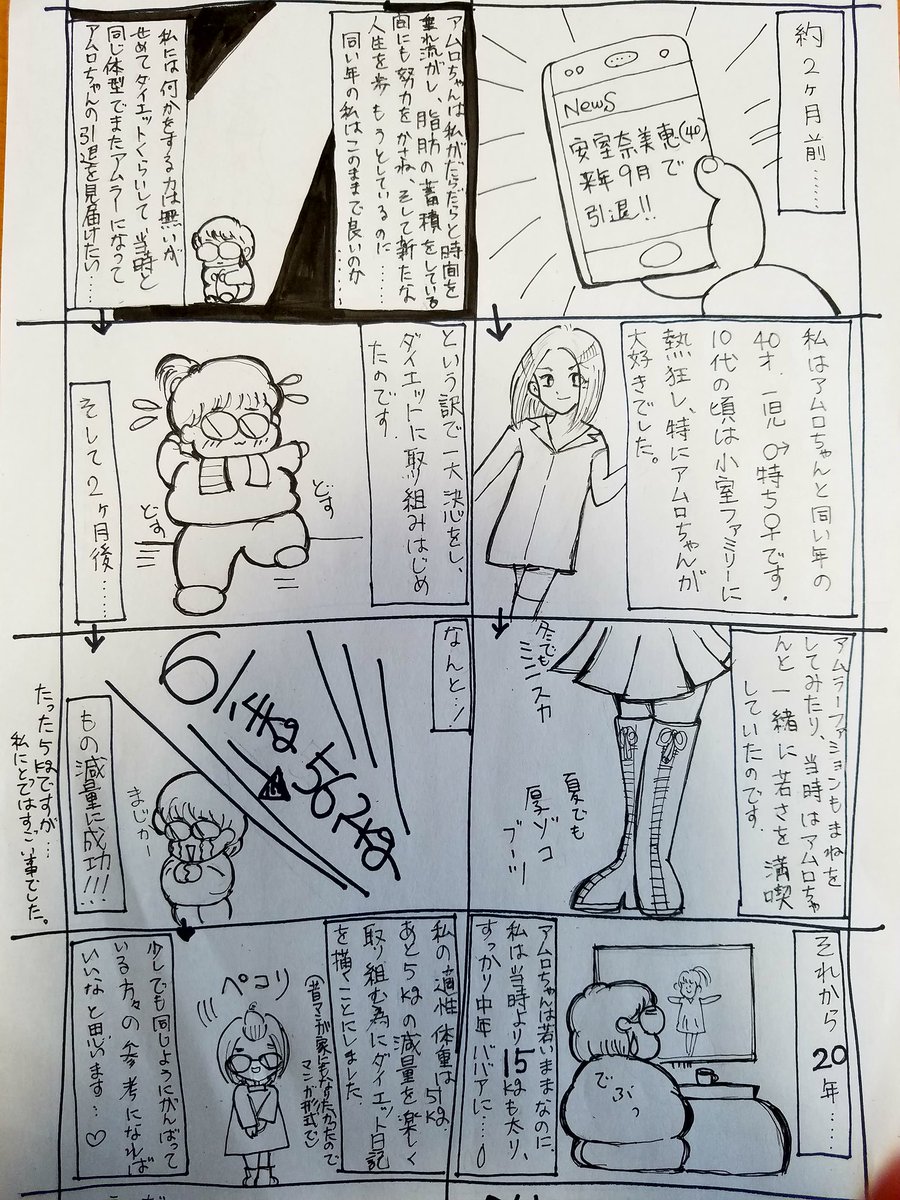 約2ヶ月前……
News
安室奈美恵(40)
来年9月で
引退!!
私はアムロちゃんと同い年の
40才、一児♂持ち♀です。
10代の頃は小室ファミリーに
熱狂し、特にアムロちゃんが
大好きでした。
アムラーファションもまねを
してみたり、当時はアムロちゃ
んと一緒に若さを満喫
していたのです。
冬でも
ミニスカ
夏でも
厚ゾコ
ブーツ
それから20年……
でぶっ
アムロちゃんは若いままなのに、
私は当時より15kgも太り、
すっかり中年ババアに……
アムロちゃんは私がだらだらと時間を
垂れ流がし、脂肪の蓄積をしている
間にも努力をかさね、そして新たな
人生を歩もうとしているのに……
同い年の私はこのままで良いのか……
私には何かをする力は無いが
せめてダイエットくらいして、当時と
同じ体型でまたアムラーになって
アムロちゃんの引退を見届けたい……
という訳で一大決心をし、
ダイエットに取り組みはじめ
たのです。
どす
どす
そして2ヶ月後……
なんと…!
61.4kg
56.2kg
まじかー
もの減量に成功!!!
たった5kgですが…
私にとってはすごい事でした。
私の適性体重は51kg。
あと5kgの減量を楽しく
取り組む為にダイエット日記
を描くことにしました。
(昔マンガ家にもなりたかったので
マンガ形式で)
ペコリ
少しでも同じようにがんばって
いる方々の参考になれば
いいなと思います…♡